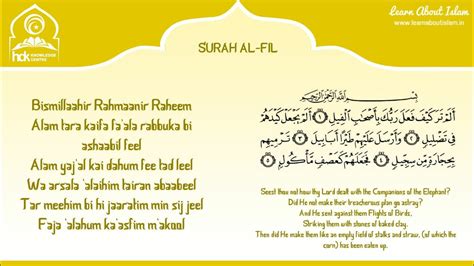 hck KNOWLEDGE CENTRE
Learn About Islam
www.learnaboutislam.in
SURAH AL-FIL
Bismillaahir Rahmaanir Raheem
Alam tara kaifa fa'ala rabbuka bi
ashaabil feel
Alam yaj'al kai dahum fee tad leel
Wa arsala 'alaihim tairan abaabeel
Tar meehim bi hi jaaratim min sij jeel
Faja 'alahum ka'asfim m'akool
بِسْمِ اللَّهِ الرَّحْمَٰنِ الرَّحِيمِ
أَلَمْ تَرَ كَيْفَ فَعَلَ رَبُّكَ بِأَصْحَابِ الْفِيلِ ۝١ أَلَمْ يَجْعَلْ كَيْدَهُمْ
فِي تَضْلِيلٍ ۝٢ وَأَرْسَلَ عَلَيْهِمْ طَيْرًا أَبَابِيلَ ۝٣ تَرْمِيهِم
بِحِجَارَةٍ مِّن سِجِّيلٍ ۝٤ فَجَعَلَهُمْ كَعَصْفٍ مَّأْكُولٍ ۝٥
Seest thou not how thy Lord dealt with the Companions of the Elephant?
Did He not make their treacherous plan go astray?
And He sent against them Flights of Birds,
Striking them with stones of baked clay.
Then did He make them like an empty field of stalks and straw, (of which
the corn) has been eaten up.